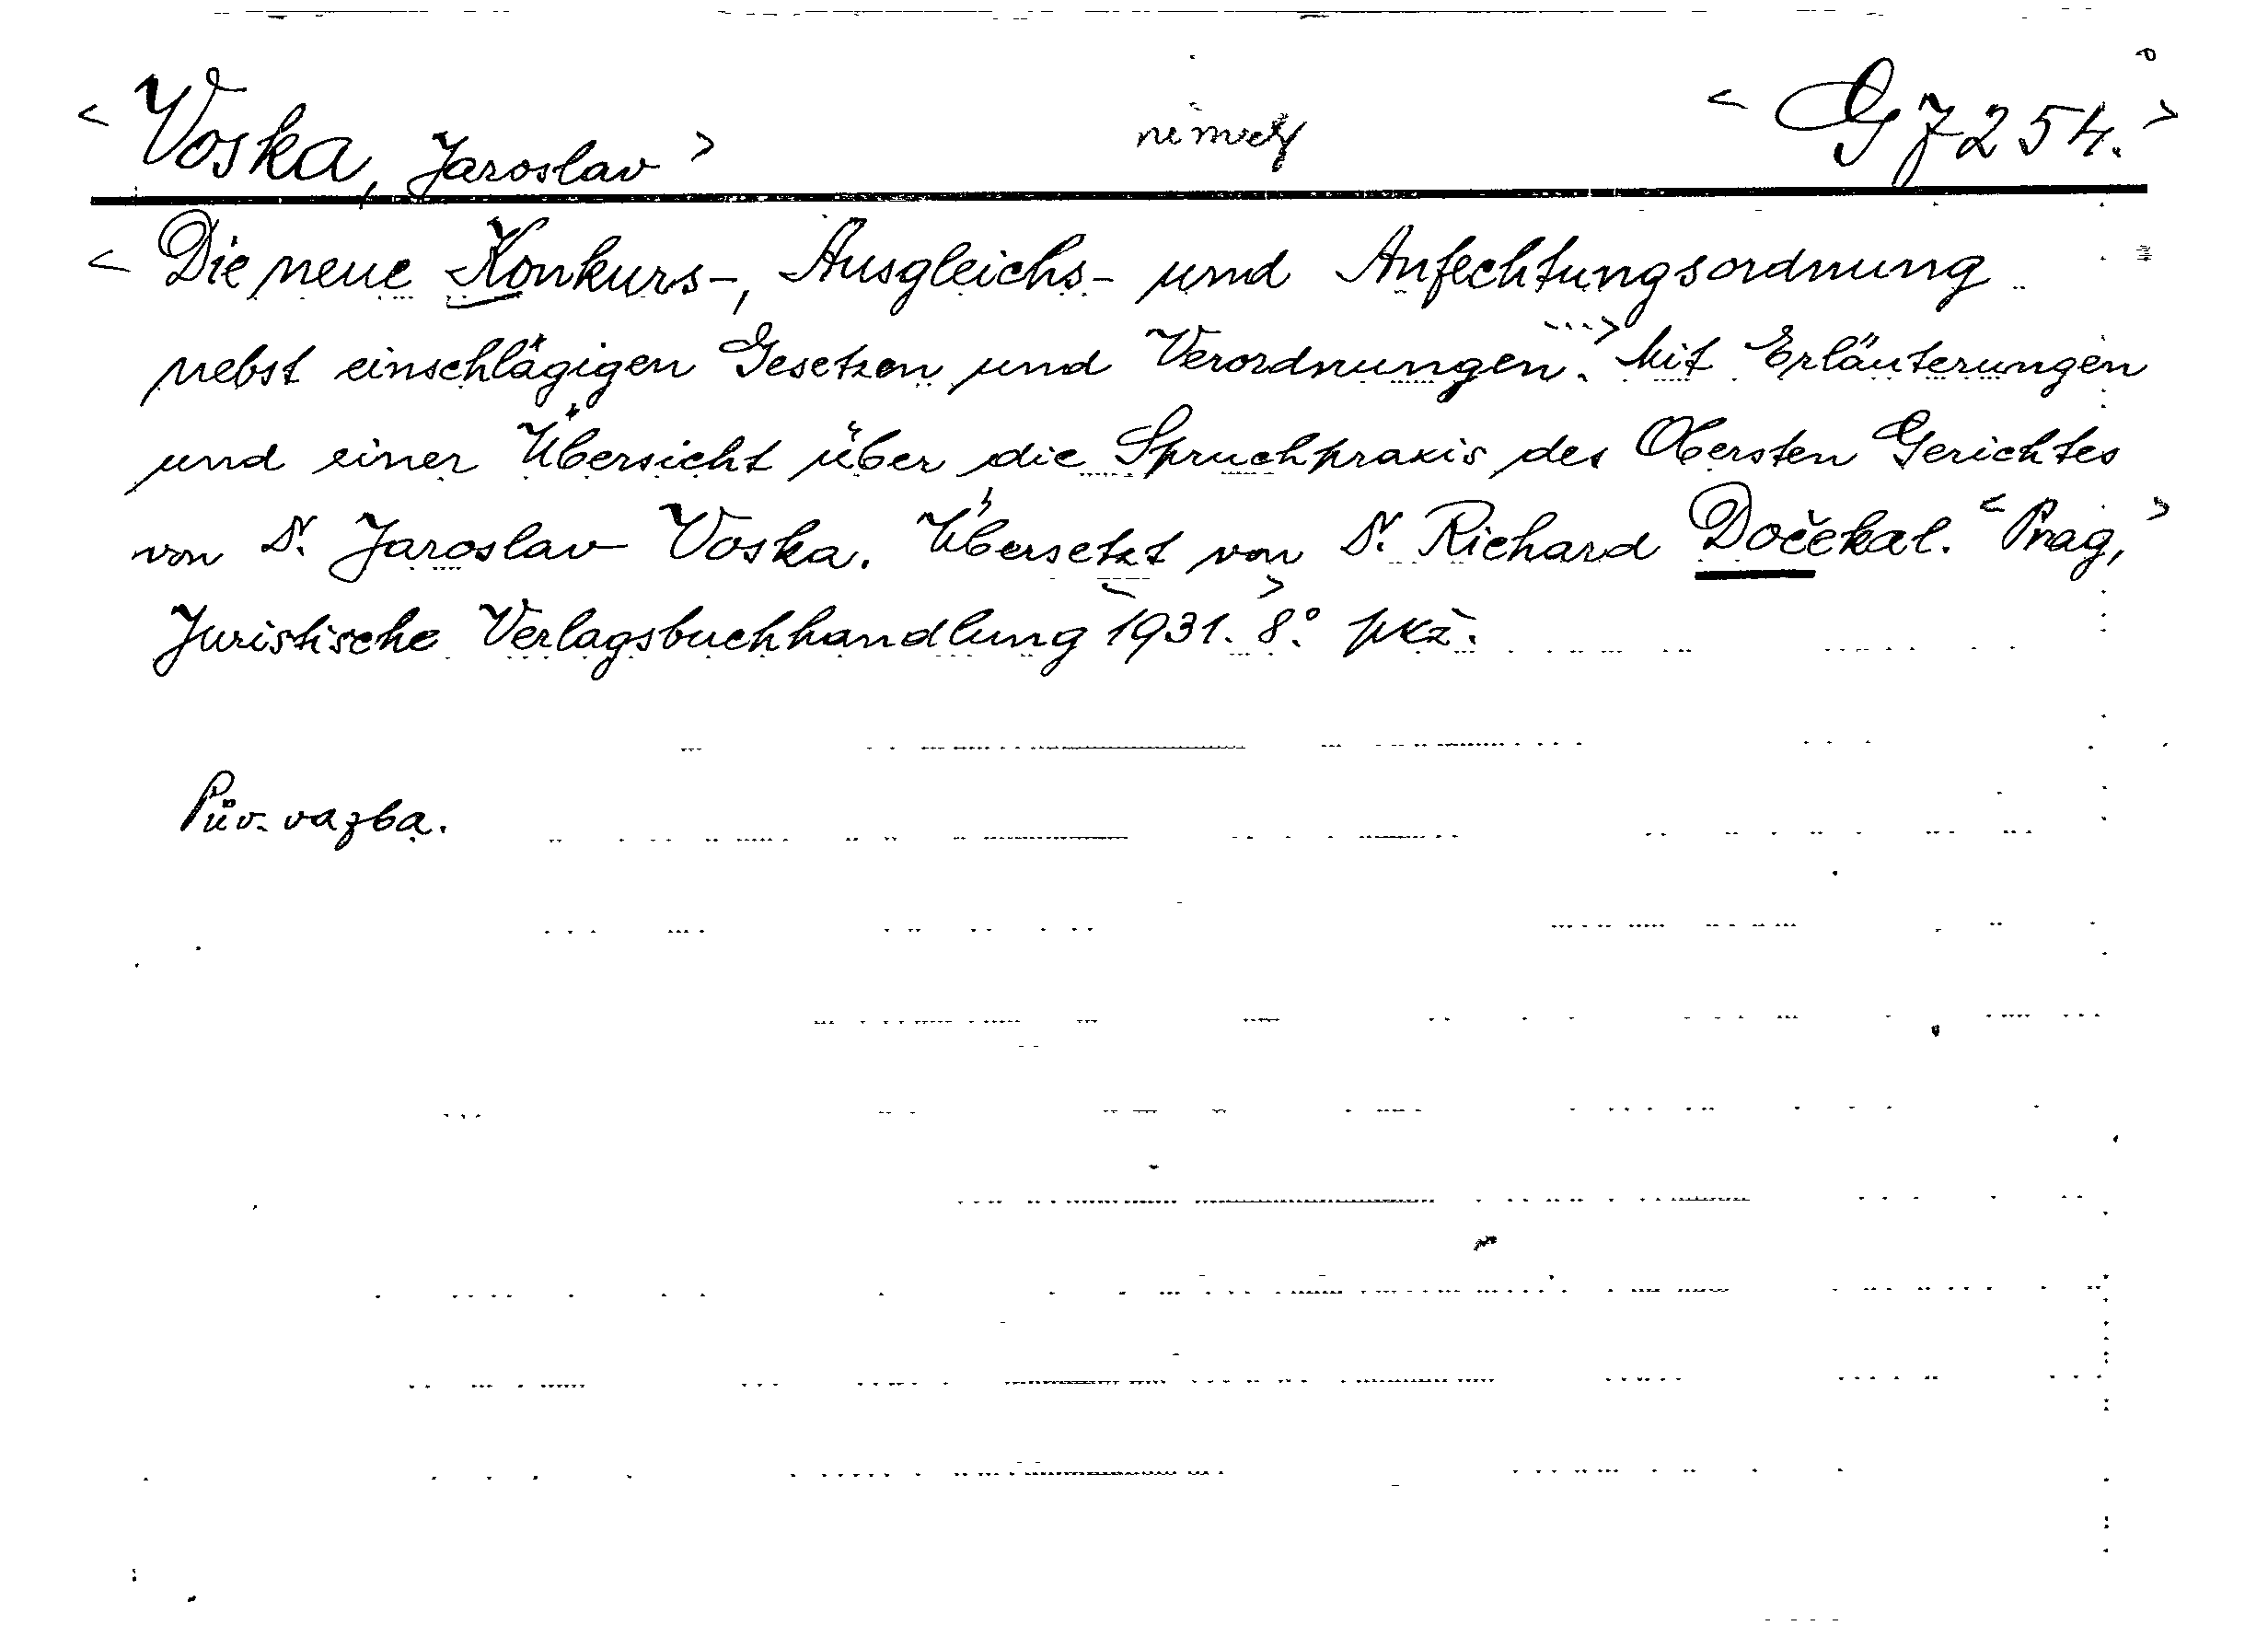 < Voska, Jaroslav > < G 7254. >
< Die neue Konkurs-, Ausgleichs- und Anfechtungsordnung
nebst einschlägigen Gesetzen und Verordnungen. ...> Mit Erläuterungen
und einer Übersicht über die Spruchpraxis des Obersten Gerichtes
von Dr. Jaroslav Voska. Übersetzt von Dr. Richard Dočekal. < Prag, >
Juristische Verlagsbuchhandlung < 1931. > 8.°
Pův. vazba.